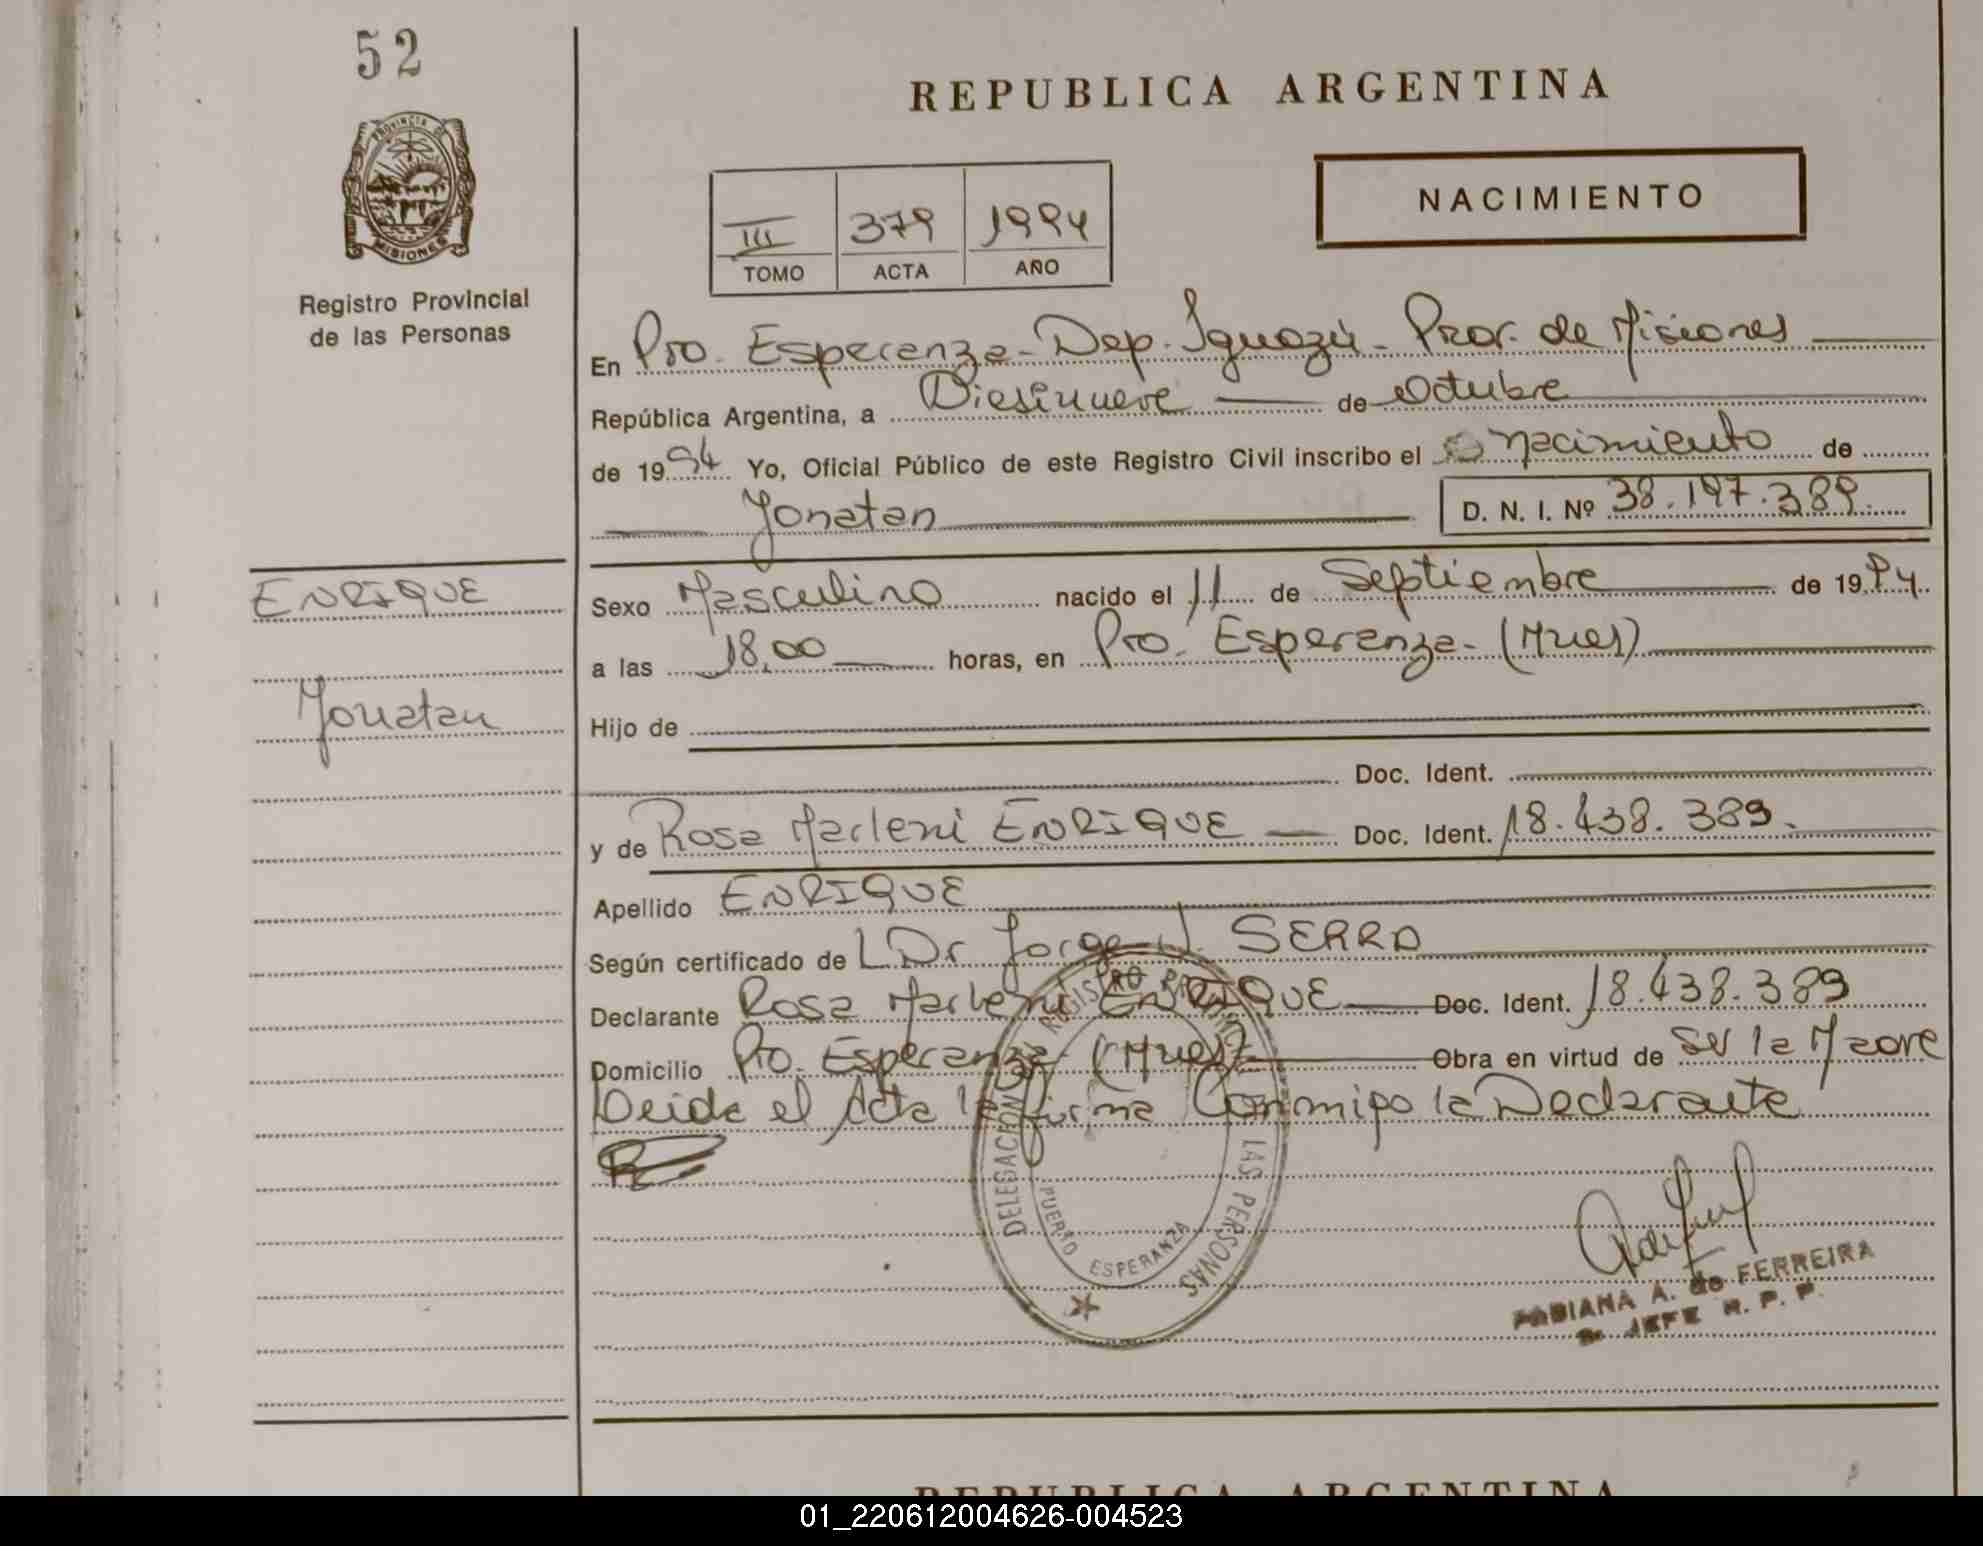 52
REPUBLICA ARGENTINA
PROVINCIA DE
MISIONES
Registro Provincial
de las Personas
NACIMIENTO
III 379 1994
TOMO ACTA AÑO
En Pto. Esperanza - Dep. Iguazú - Prov. de Misiones
República Argentina, a Diesinueve de Octubre
de 1994 Yo, Oficial Público de este Registro Civil inscribo el nacimiento de
Jonatan D. N. I. Nº 38.197.389.
ENRIQUE
Jonatan
Sexo Masculino nacido el 11 de Septiembre de 1994.
a las 18,00 horas, en Pto. Esperanza - (Mnes)
Hijo de
Doc. Ident.
y de Rosa Marleni ENRIQUE Doc. Ident. 18.438.389.
Apellido ENRIQUE
Según certificado de Dr Jorge J. SERRA
Declarante Rosa Marleni ENRIQUE Doc. Ident. 18.438.389
Domicilio Pto. Esperanza (Mnes) Obra en virtud de Ser la Madre
Leida el Acta la firma Conmigo la Declarante
DELEGACION REGISTRO LAS PERSONAS
PUERTO ESPERANZA
FABIANA A. de FERREIRA
JEFE R. P. P.
REPUBLICA ARGENTINA
01_220612004626-004523